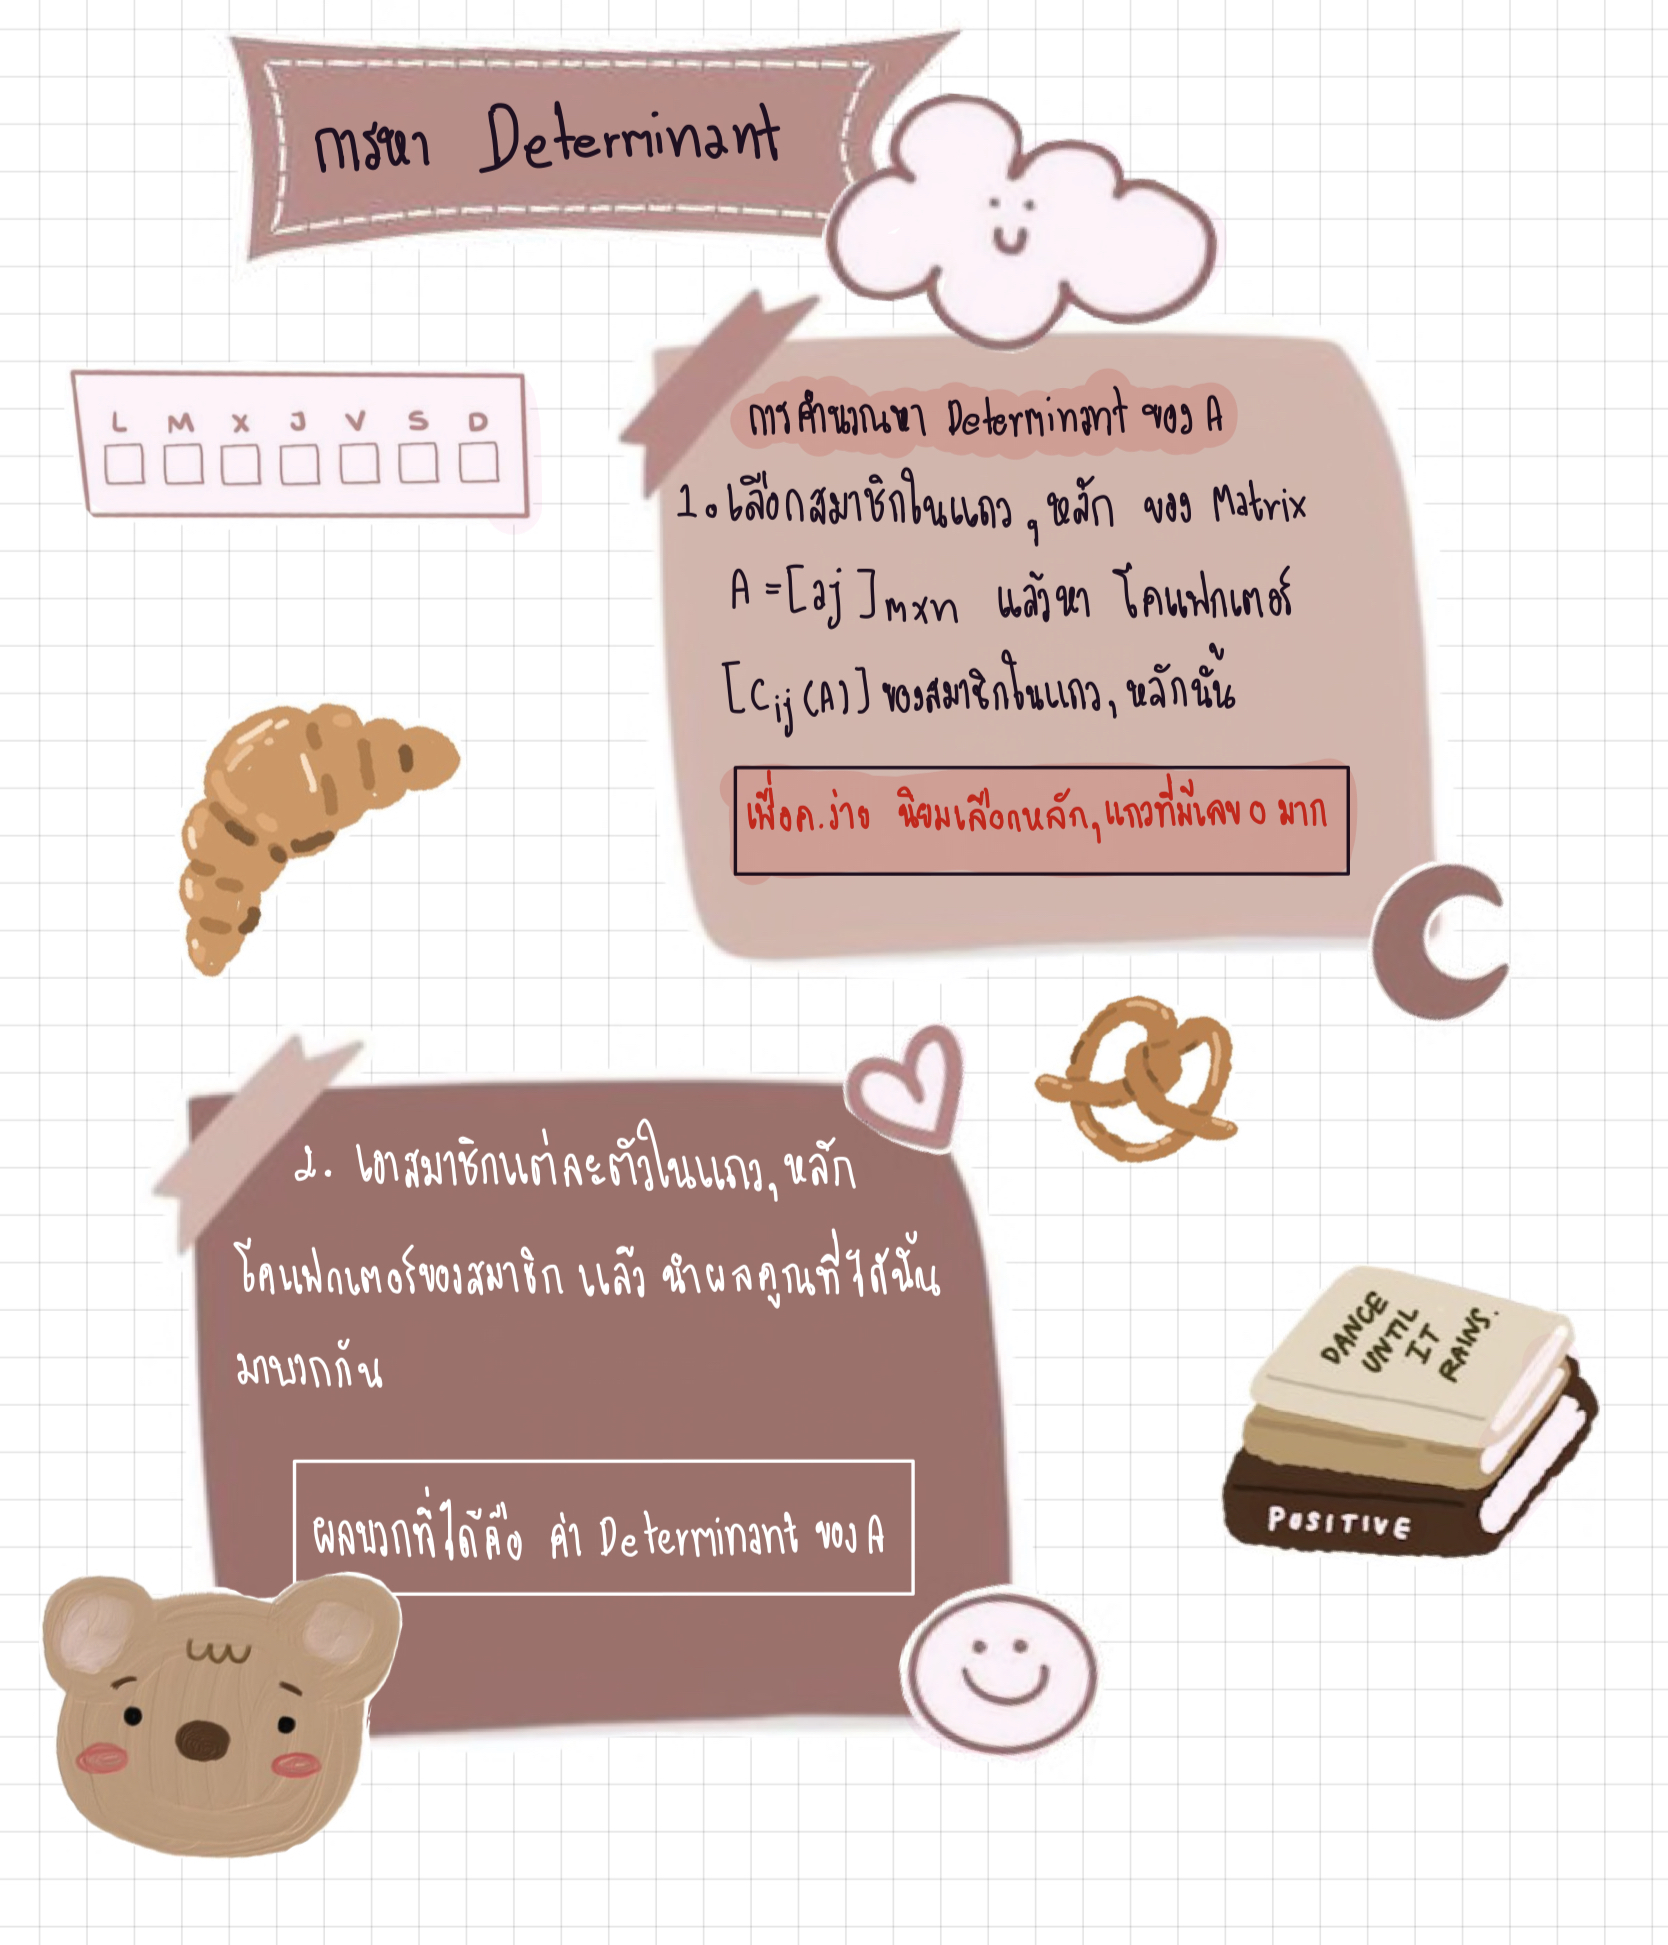 การหา Determinant
L M X J V S D
การคำนวณหา Determinant ของ A
1. เลือกสมาชิกในแถว, หลัก ของ Matrix
A = [aj]mxn แล้วหา โคแฟกเตอร์
[Cij(A)] ของสมาชิกในแถว, หลักนั้น
เพื่อค.ง่าย นิยมเลือกหลัก, แถวที่มีเลข 0 มาก
2. เอาสมาชิกแต่ละตัวในแถว, หลัก
โคแฟกเตอร์ของสมาชิก แล้ว นำผลคูณที่ได้นั้น
มาบวกกัน
ผลบวกที่ได้คือ ค่า Determinant ของ A
DANCE
UNTIL
IT
RAINS.
POSITIVE